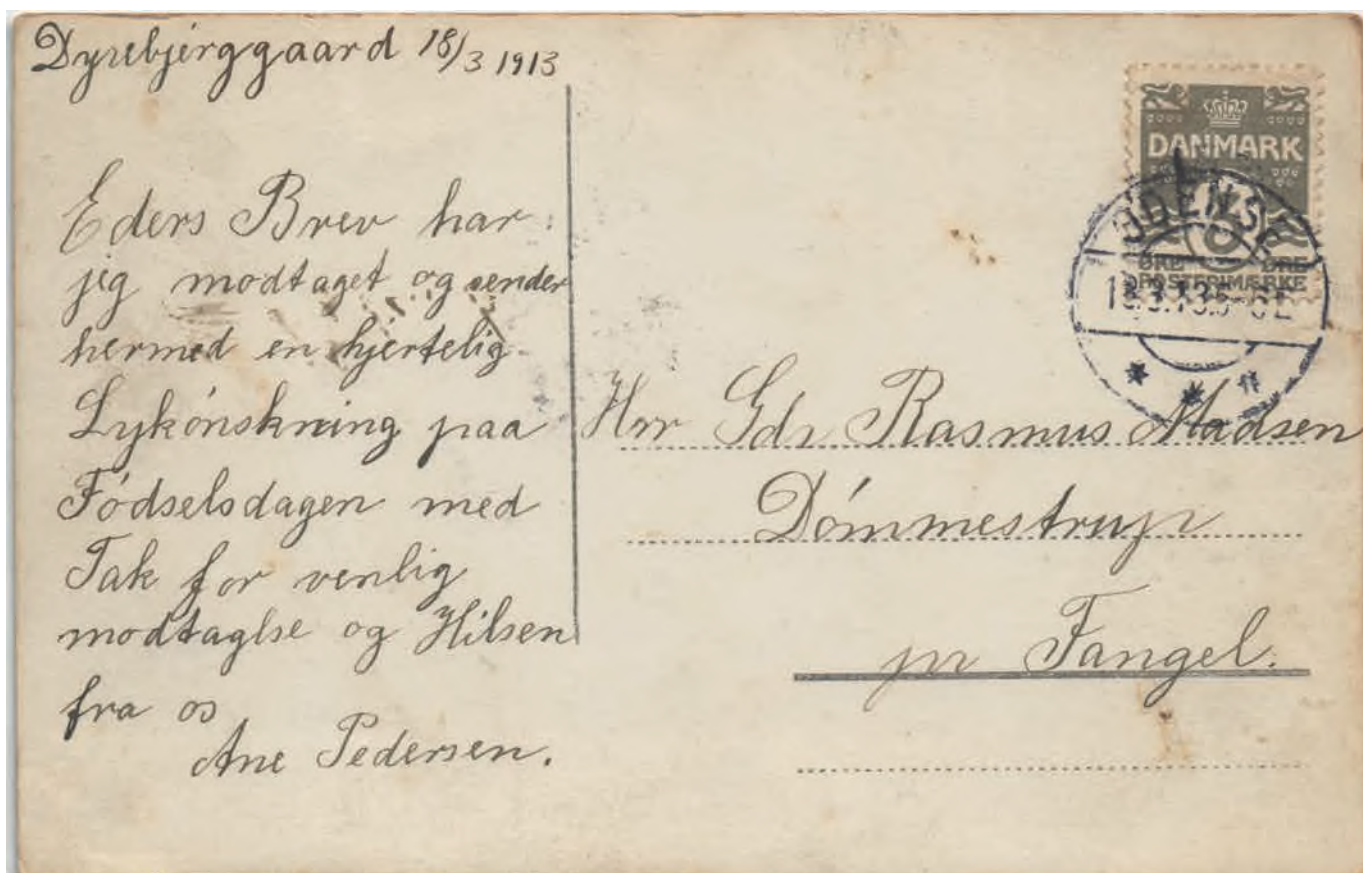 Dyrebjerggaard 18/3 1913
Eders Brev har
jeg modtaget og sender
hermed en hjertelig
Lykónskning paa
Fódselsdagen med
Tak for venlig
modtaglse og Hilsen
fra os
Ane Pedersen.
DANMARK
ØRE ØRE
POSTFRIMÆRKE
ODENSE
Hrr Gdr Rasmus Madsen
Dómmestrup
pr Fangel.